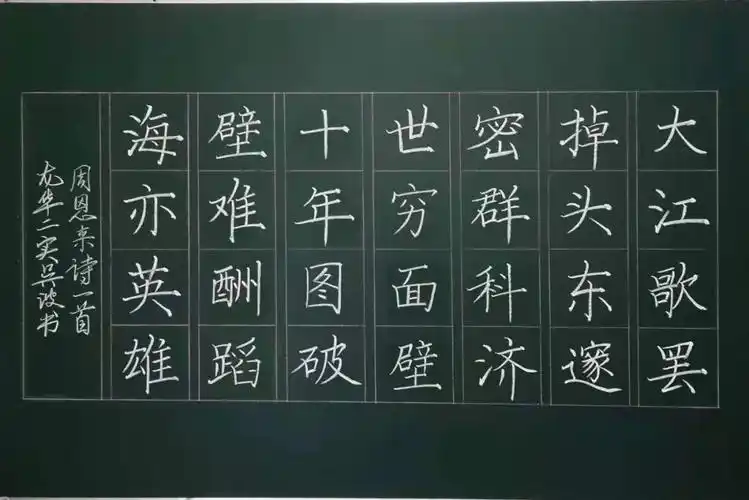 大江歌罢
掉头东邃
密群科济
世穷面壁
十年图破
壁难酬蹈
海亦英雄
周恩来诗一首
龙华二实吴波书